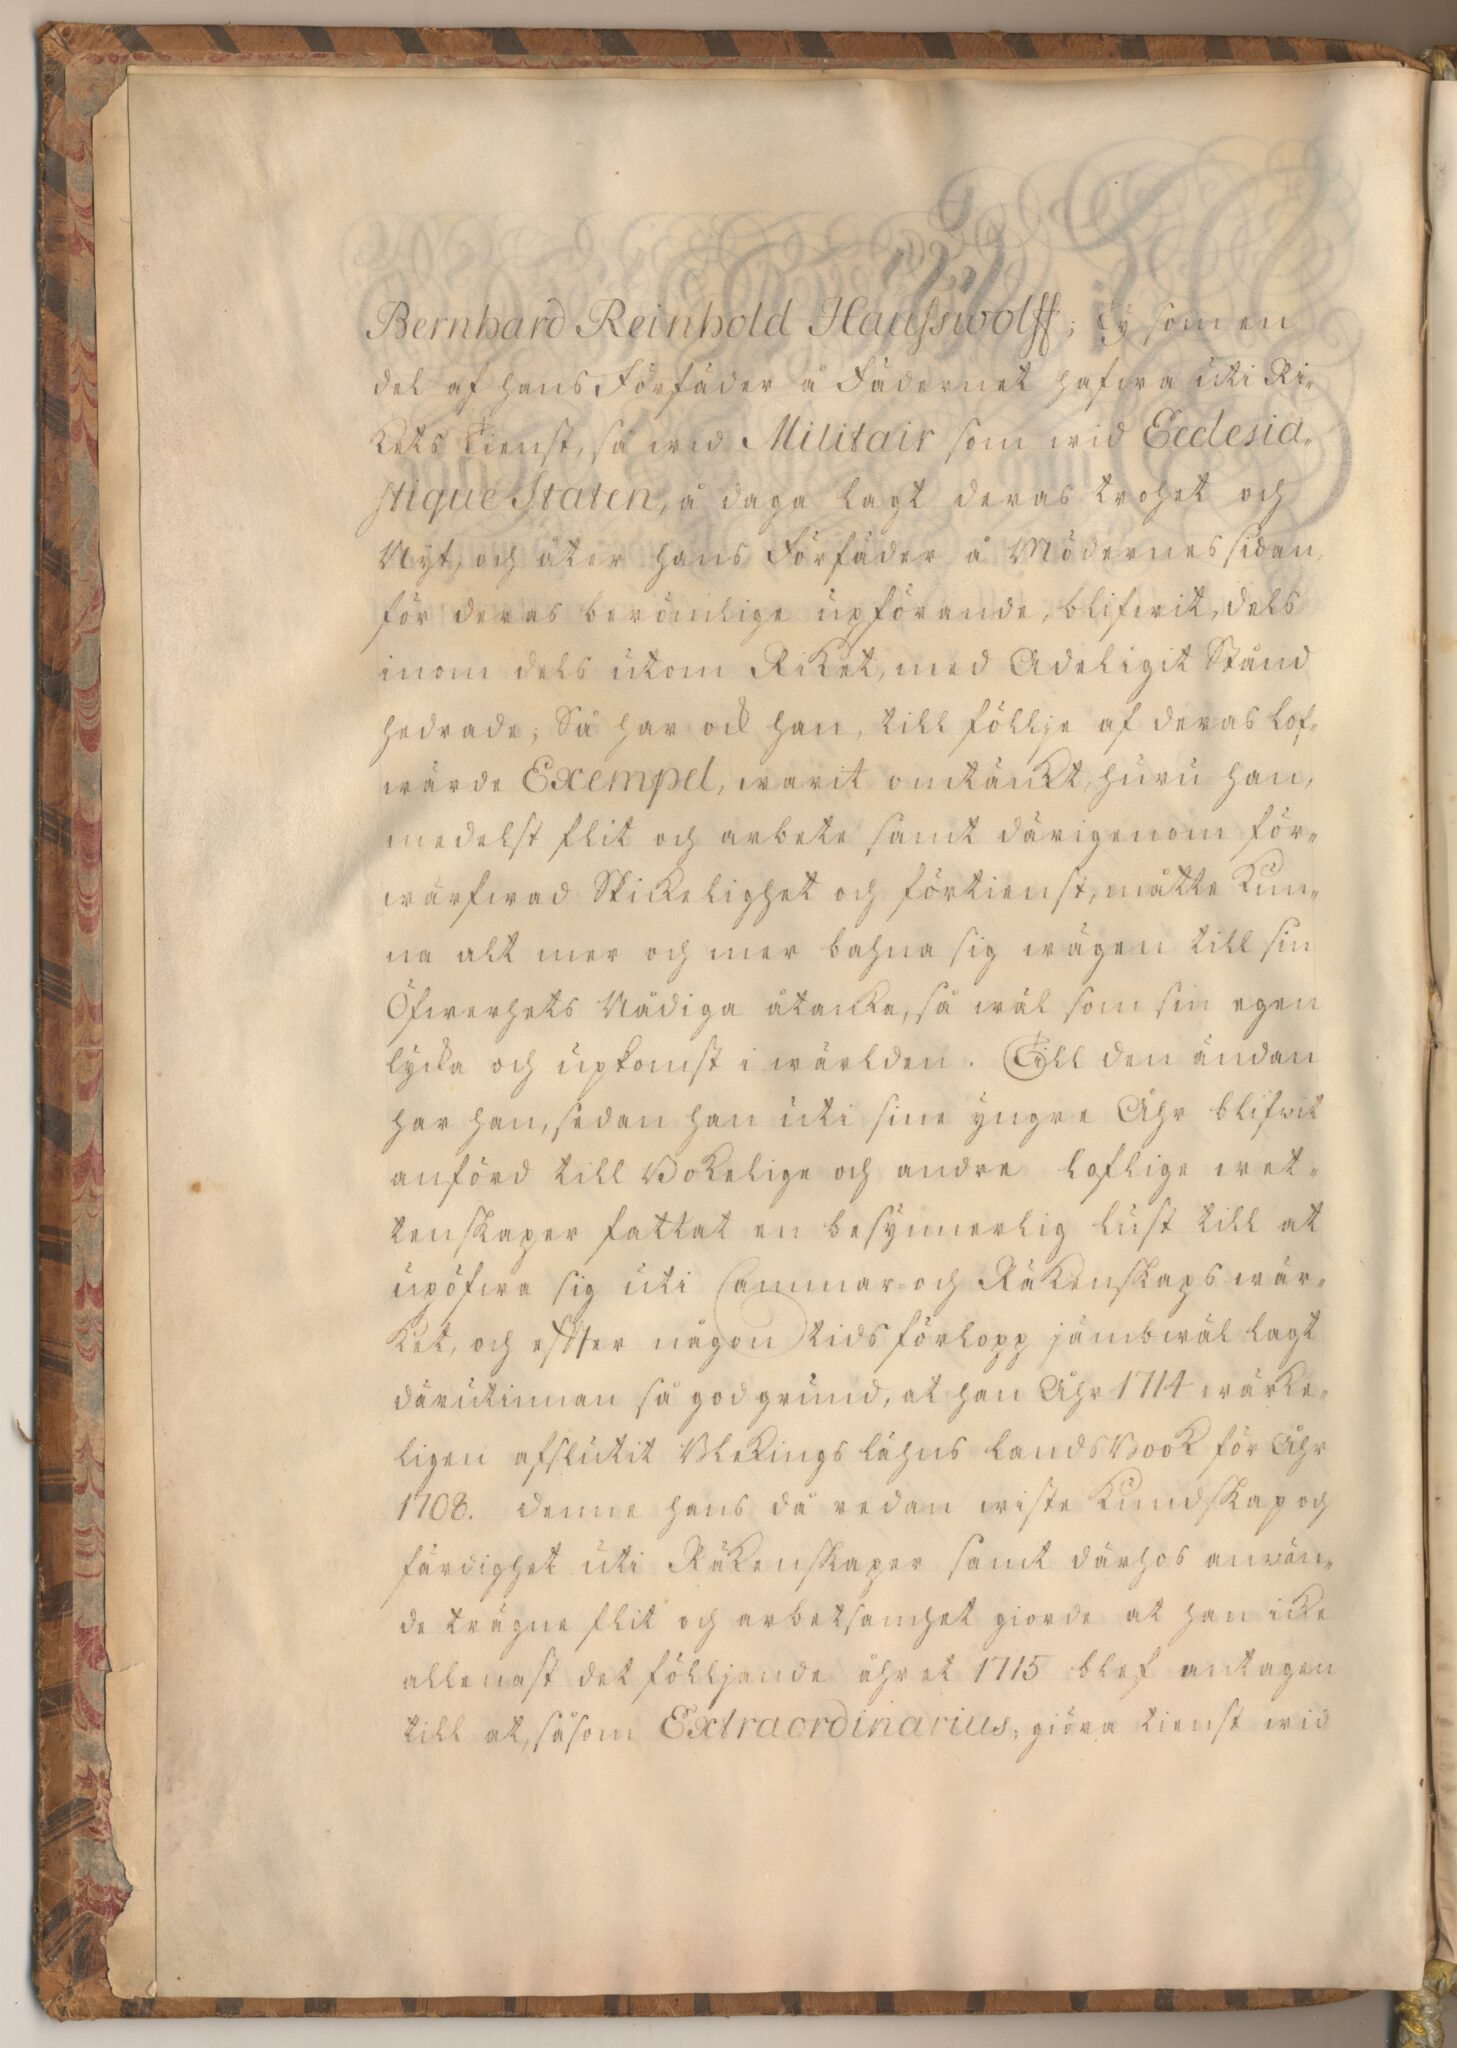 Bernhard Reinhold Hausswolff; ty som en
del af hans Förfäder å Fädernet hafwa uti Ri-
kets tienst, så wid Militair som wid Ecclesia-
stique Staten, å daga lagt deras trohet och
Nyt, och åter hans Förfäder å Mödernes sidan,
för deras berömlige upförande, blifwit, dels
inom dels utom Riket, med Adeligit Stånd
hedrade; Så har ock han, till föllje af deras lof-
wärde Exempel, warit omtänkt, huru han,
medelst flit och arbete samt därigenom för-
wärfwad Skickelighet och förtienst, måtte kun-
na alt mer och mer bahna sig wägen till sin
Öfwerhets Nådiga åtanka, så wäl som sin egen
lycka och upkomst i wärlden. Till den ändan
har han, sedan han uti sine yngre Åhr blifwit
anförd till Bokelige och andre loflige wet-
tenskaper fattat en besynnerlig lust till at
upöfwa sig uti Cammar- och Räkenskaps wär-
ket, och effter någon tids förlopp jämbwäl lagt
därutinnan så god grund, at han Åhr 1714 wärke-
ligen afslutit Blekings lähns Lands Book för Åhr
1708. denne hans då redan wiste kundskap och
färdighet uti Räkenskaper samt därhos anwän-
de trägne flit och arbetsamhet giorde at han icke
allenast det fölljande åhret 1715 blef antagen
till at, såsom Extraordinarius, giöra tienst wid